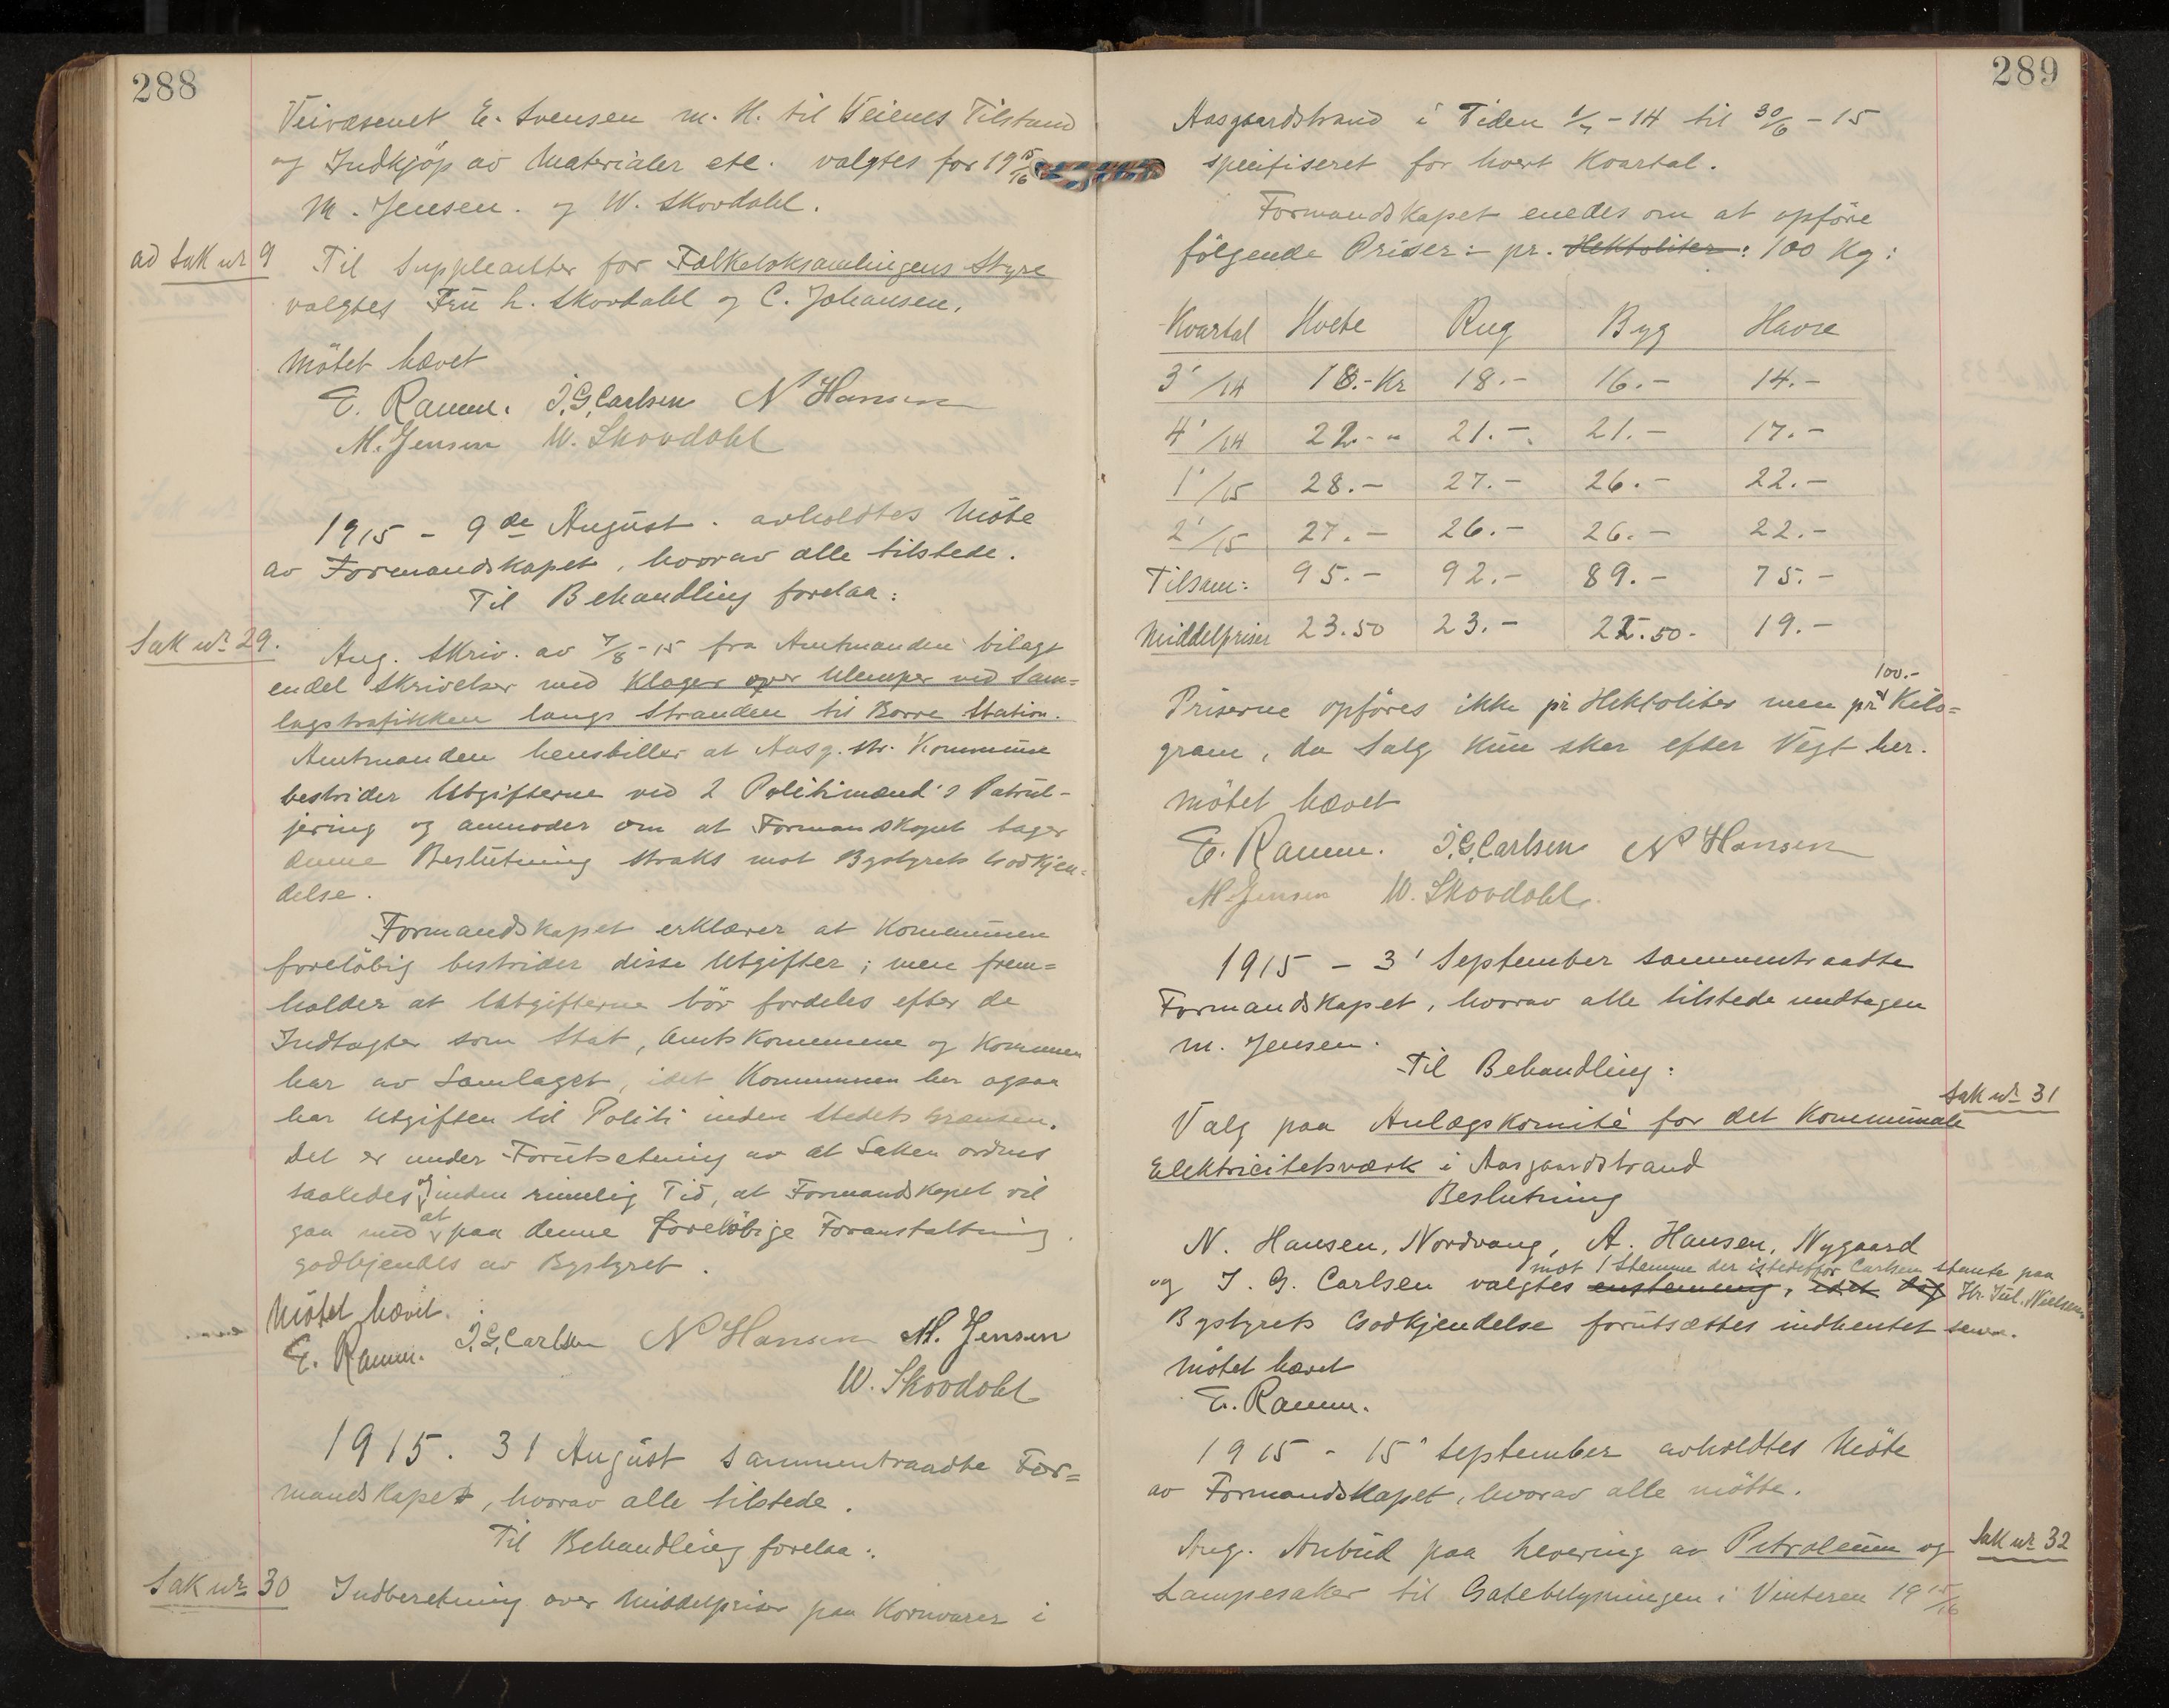 288
Veivæsenet E. Svensen m. H. til Veienes Tilstand
og Indkjöp av Materialer etc. valgtes for 19 15/16
M. Jensen. og W. Skovdahl.
ad Sak nr 9
Til Suppleanter for Folkeboksamlingens Styre
valgtes Fru L. Skovdahl og C. Johansen.
Mötet hævet
E. Ramm. J.G.Carlsen N Hansen
M. Jensen W. Skovdahl
1915 - 9de August. avholdtes Möte
av Formandskapet, hvorav alle tilstede.
Til Behandling forelaa:
Sak nr 29.
Ang. Skriv. av 7/8-15 fra Amtmanden bilagt
endel Skrivelser med Klager over Ulemper ved Sam=
lagstrafikken langs Stranden til Borre Station.
Amtmanden henstiller at Aasg.str. Kommune
bestrider Utgifterne ved 2 Politimænd's Patrul-
jering og anmoder om at Formanskapet tager
denne Beslutning straks mot Bystyrets Godkjen=
delse.
Formandskapet erklærer at Kommunen
foreløbig bestrider disse Utgifter; men frem=
holder at Utgifterne bör fordeles efter de
Indtægter som Stat, Amtskommune og Kommunen
har av Samlaget, idet Kommunen her ogsaa
har Utgiften til Politi inden Stedets Grænser.
Det er under Forutsetning av at Saken ordnes
saaledes og inden rimelig Tid, at Formandskapet vil
gaa med at paa denne foreløbige Foranstaltning
godkjendes av Bystyret.
Mötet hævet.
E. Ramm. J.G.Carlsen N Hansen M. Jensen
W. Skovdahl
1915. 31 August sammentraadte For=
mandskapet, hvorav alle tilstede.
Til Behandling forelaa:
Sak nr 30
Indberetning over Middelpriser paa Kornvarer i
289
Aasgaardstrand i Tiden 1/7-14 til 30/6-15
spesifiseret for hvert Kvartal.
Formandskapet enedes om at opföre
fölgende Priser:- pr. Hektoliter: 100 Kg:
Kvartal Hvete Rug Byg Havre
3'/14 18.-Kr 18.- 16.- 14.-
4'/14 22.-" 21.-. 21.- 17.-
1'/15 28.- 27.- 26.- 22.-
2'/15 27.- 26.- 26.- 22.-
Tilsam: 95.- 92.- 89.- 75.-
Middelpriser 23.50 23.- 22.50- 19.-
Priserne opføres ikke pr Hektoliter men pr 100.- Kilo=
gram, da Salg kun sker efter Vegt her.
Mötet hævet
E. Ramm. J.G.Carlsen N Hansen
M. Jensen W. Skovdahl.
1915 - 3' September sammentraadte
Formandskapet, hvorav alle tilstede undtagen
M. Jensen.
Til Behandling:
Sak nr 31
Valg paa Anlægskomité for det Kommunale
Elektricitetsværk i Aasgaardstrand
Beslutning
N. Hansen, Nordvang, A. Hansen, Nygaard
mot 1 Stemme der istedetfor Carlsen stemte paa
og J. G. Carlsen valgtes enstemmig, idet Hr. Jul. Nielsen.
Bystyrets Godkjendelse forutsættes indhentet senere.
Mötet hævet
E. Ramm.
1915 - 15' September avholdtes Möte
av Formandskapet, hvorav alle mötte.
Sak nr 32
Ang. Anbud paa Levering av Petroleum og
Lampesaker til Gatebelysningen i Vinteren 19 15/16